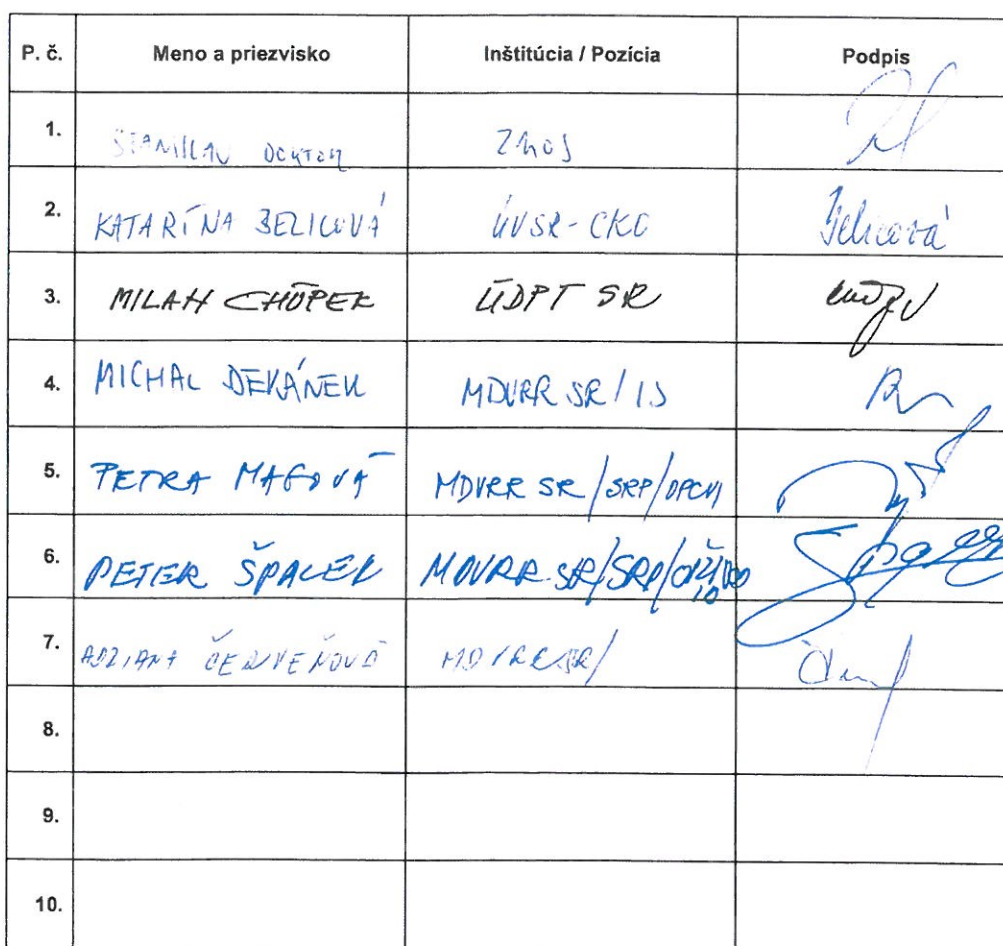 P. č. Meno a priezvisko Inštitúcia / Pozícia Podpis
1. ZMOS
2. KATARÍNA BELICOVÁ ÚVSR-CKO Belicová
3. MILAN CHÚPEK ÚDPT SR
4. MICHAL DEKÁNEK MDVRR SR/IS
5. PETRA MAGOVÁ MDVRR SR/SRP/
6. PETER ŠPALEK MDVRR SR/SRP/
7. ADRIANA ČERVEŇOVÁ MDVRR SR/
8.
9.
10.